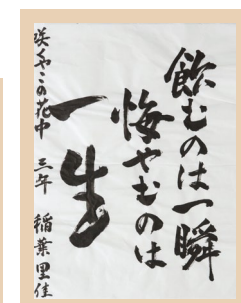 飲むのは一瞬
悔やむのは
一生
咲くやこの花中 三年 稲葉里佳